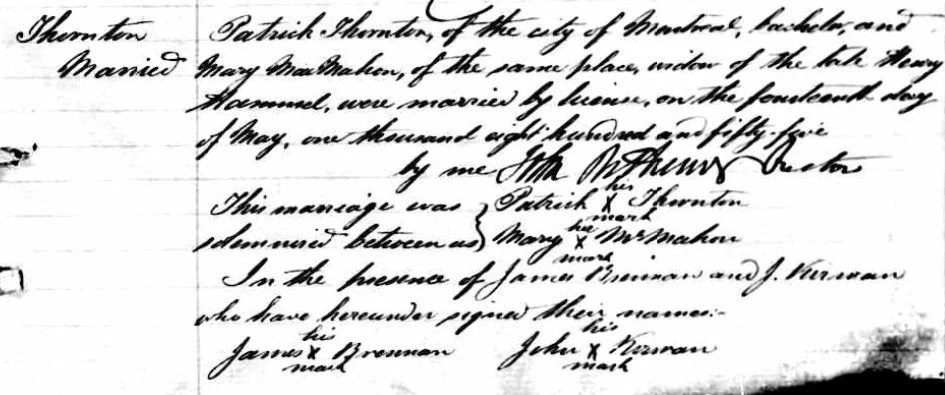 Thornton
Married
Patrick Thornton, of the city of Montreal, bachelor, and
Mary MacMahon, of the same place, widow of the late Henry
Hammel, were married by license, on the fourteenth day
of May, one thousand eight hundred and fifty-five
by me John Rector
This marriage was } Patrick his X mark Thornton
solemnized between us } Mary her X mark McMahon
In the presence of James Brennan and J. Kirwan
who have hereunder signed their names:-
James his X mark Brennan John his X mark Kirwan